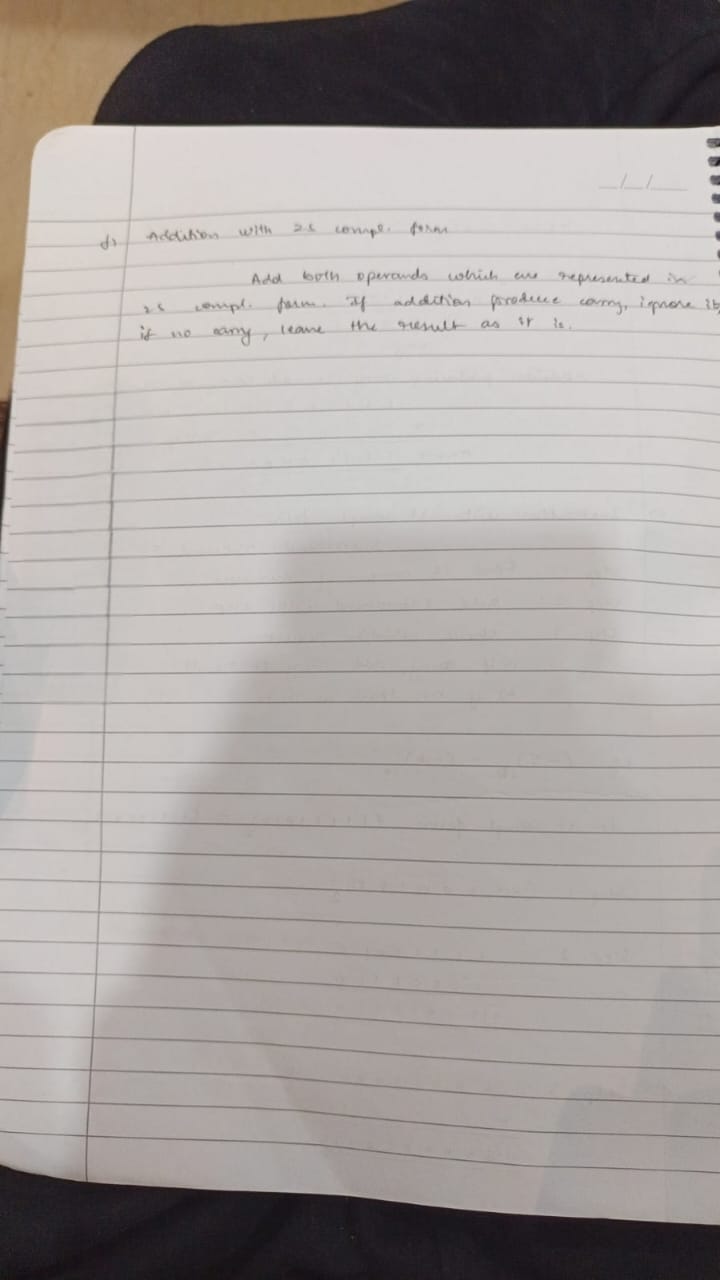 f) Addition with 2s compl. form
Add both operands which are represented in
2s compl. form. If addition produce carry, ignore it,
if no carry, leave the result as it is.